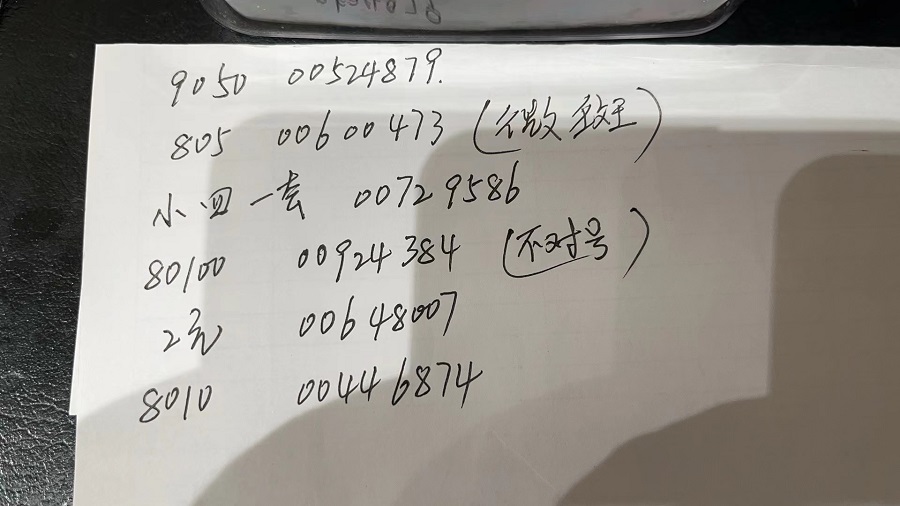 9050 00524879.
805 00600473 (微致王)
小四一套 00729586
80100 00924384 (不对号)
2元 00648007
8010 00446874